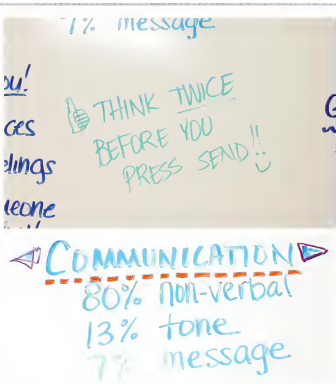 7% message
ou!
ces
elings
meone
THINK TWICE
BEFORE YOU
PRESS SEND!!
COMMUNICATION
80% non-verbal
13% tone
7% message